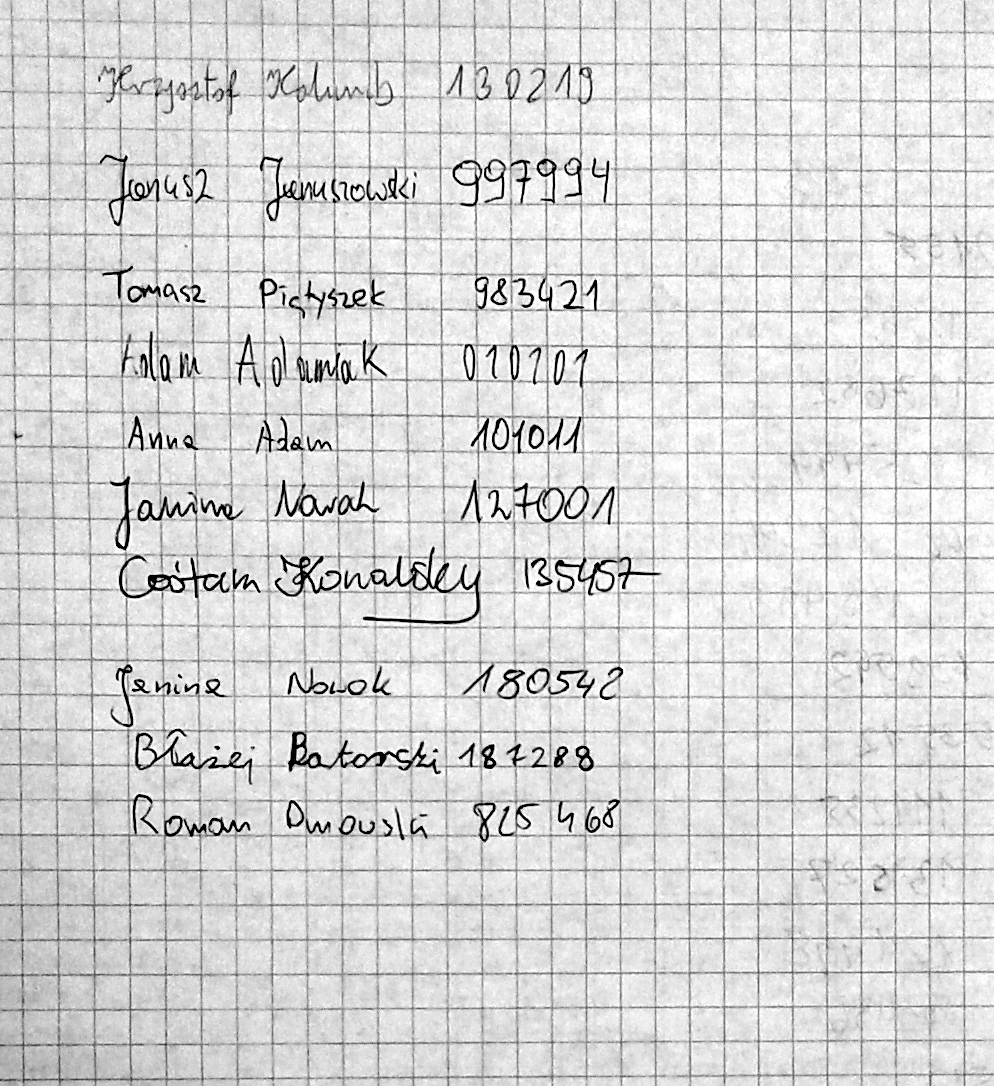 Krzysztof Kolumb 130219
Janusz Januszowski 997994
Tomasz Piątyszek 983421
Adam Adamiak 010101
Anna Adam 101011
Janina Nawak 127001
Cośtam Kowalsky 135457
Janina Nowok 180542
Błażej Batorski 187288
Roman Dmowski 825 468